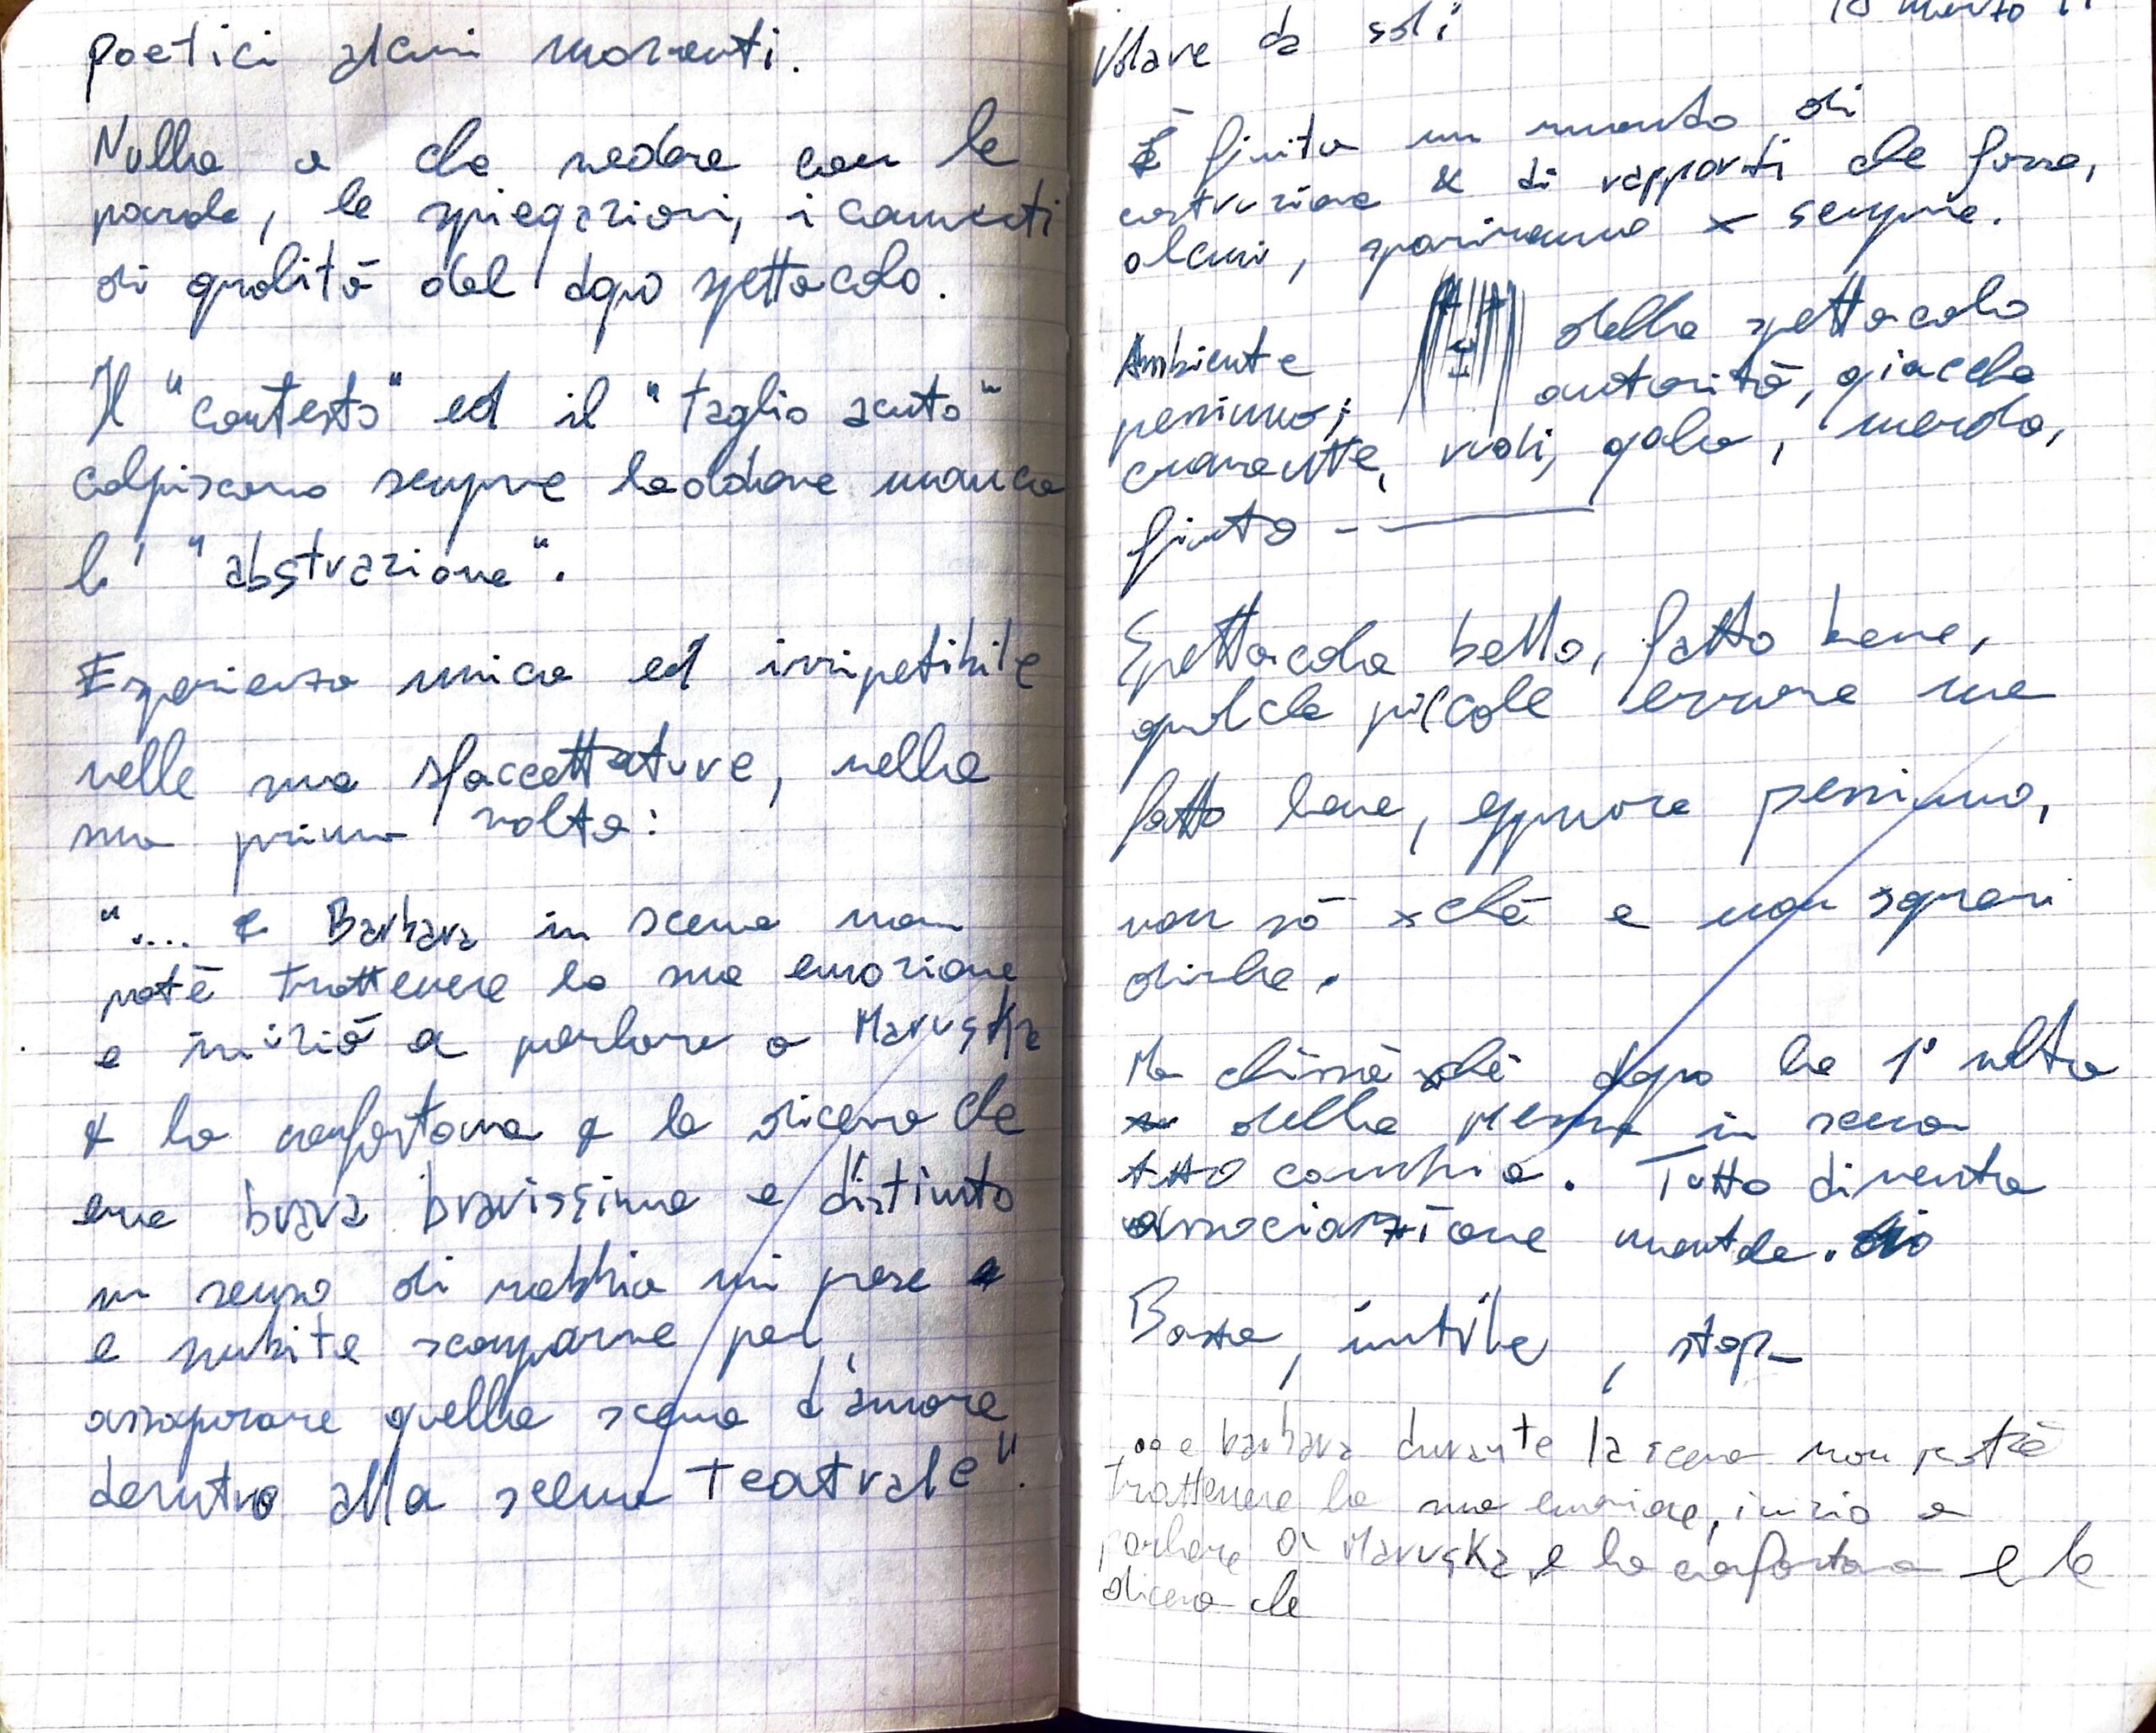 poetici alcuni momenti.
Nulla a che vedere con le
parole, le spiegazioni, i commenti
di qualità del dopo spettacolo.
Il "contesto" ed il "taglio acuto"
colpiscono sempre laddove manca
l' "abstrazione".
Esperienza unica ed irripetibile
nelle sue sfaccettature, nella
sua prima volta:
".... e Barbara in scena non
potè trattenere la sua emozione
e iniziò a parlare a Maruska
e la confortava e le diceva che
era brava bravissima e d'istinto
un senso di rabbia mi prese
e subito scomparve per
assaporare quella scena d'amore
dentro alla scena teatrale".
Volare da soli 18 marzo
È finito un mondo di
costruzione & di rapporti che forse,
alcuni, spariranno x sempre.
Ambiente dello spettacolo
pessimo; autorità, giacche
cravatte, visoli, gala, merda,
finto - —
Spettacolo bello, fatto bene,
qualche piccole errore ma
fatto bene, eppure pessimo,
non sò xchè e non saprei
dirlo.
Ma chissà xchè dopo la 1° volta
della messa in scena
tutto cambia. Tutto diventa
associazione mentale.
Basta, inutile, stop_
... e barbara durante la scena non potè
trattenere la sua emozione, inizio a
parlare a Maruska e la confortava e le
diceva che